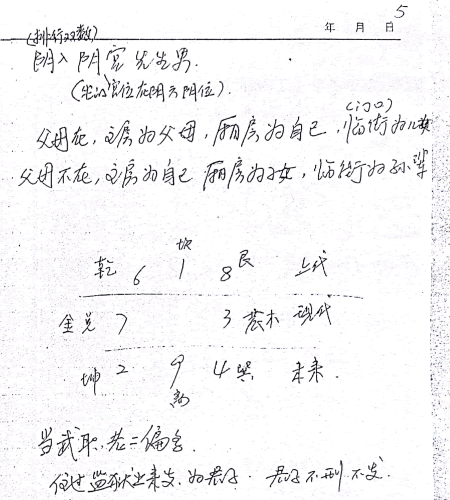 5
年 月 日
(排行双数)
阴入阴宫先生男.
(生的宫位在阴六阴位).
(门口)
父母在,主房为父母,厢房为自己,临街为儿孩
父母不在,主房为自己 厢房为子女,临街为孙辈
乾 6 坎 1 8 艮 上代
金兑 7 3 震木 现代
坤 2 9 离 4 巽 未来.
当武职,老二偏名
住过监狱出来发,为君子. 君子不刑不发.